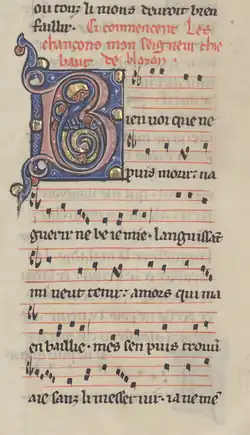 ou touz li mons devroit bien
faillir.
Ci commencent Les
chançons mon seigneur thie
baut de blazon.
Bien voi que ne
puis mour. ua
guerir ne be ie mie. languissāt
mi veut tenir. amors qui ma
en baillie. mes sen puis trouū
aie sanz li messer uir. ia ne mē